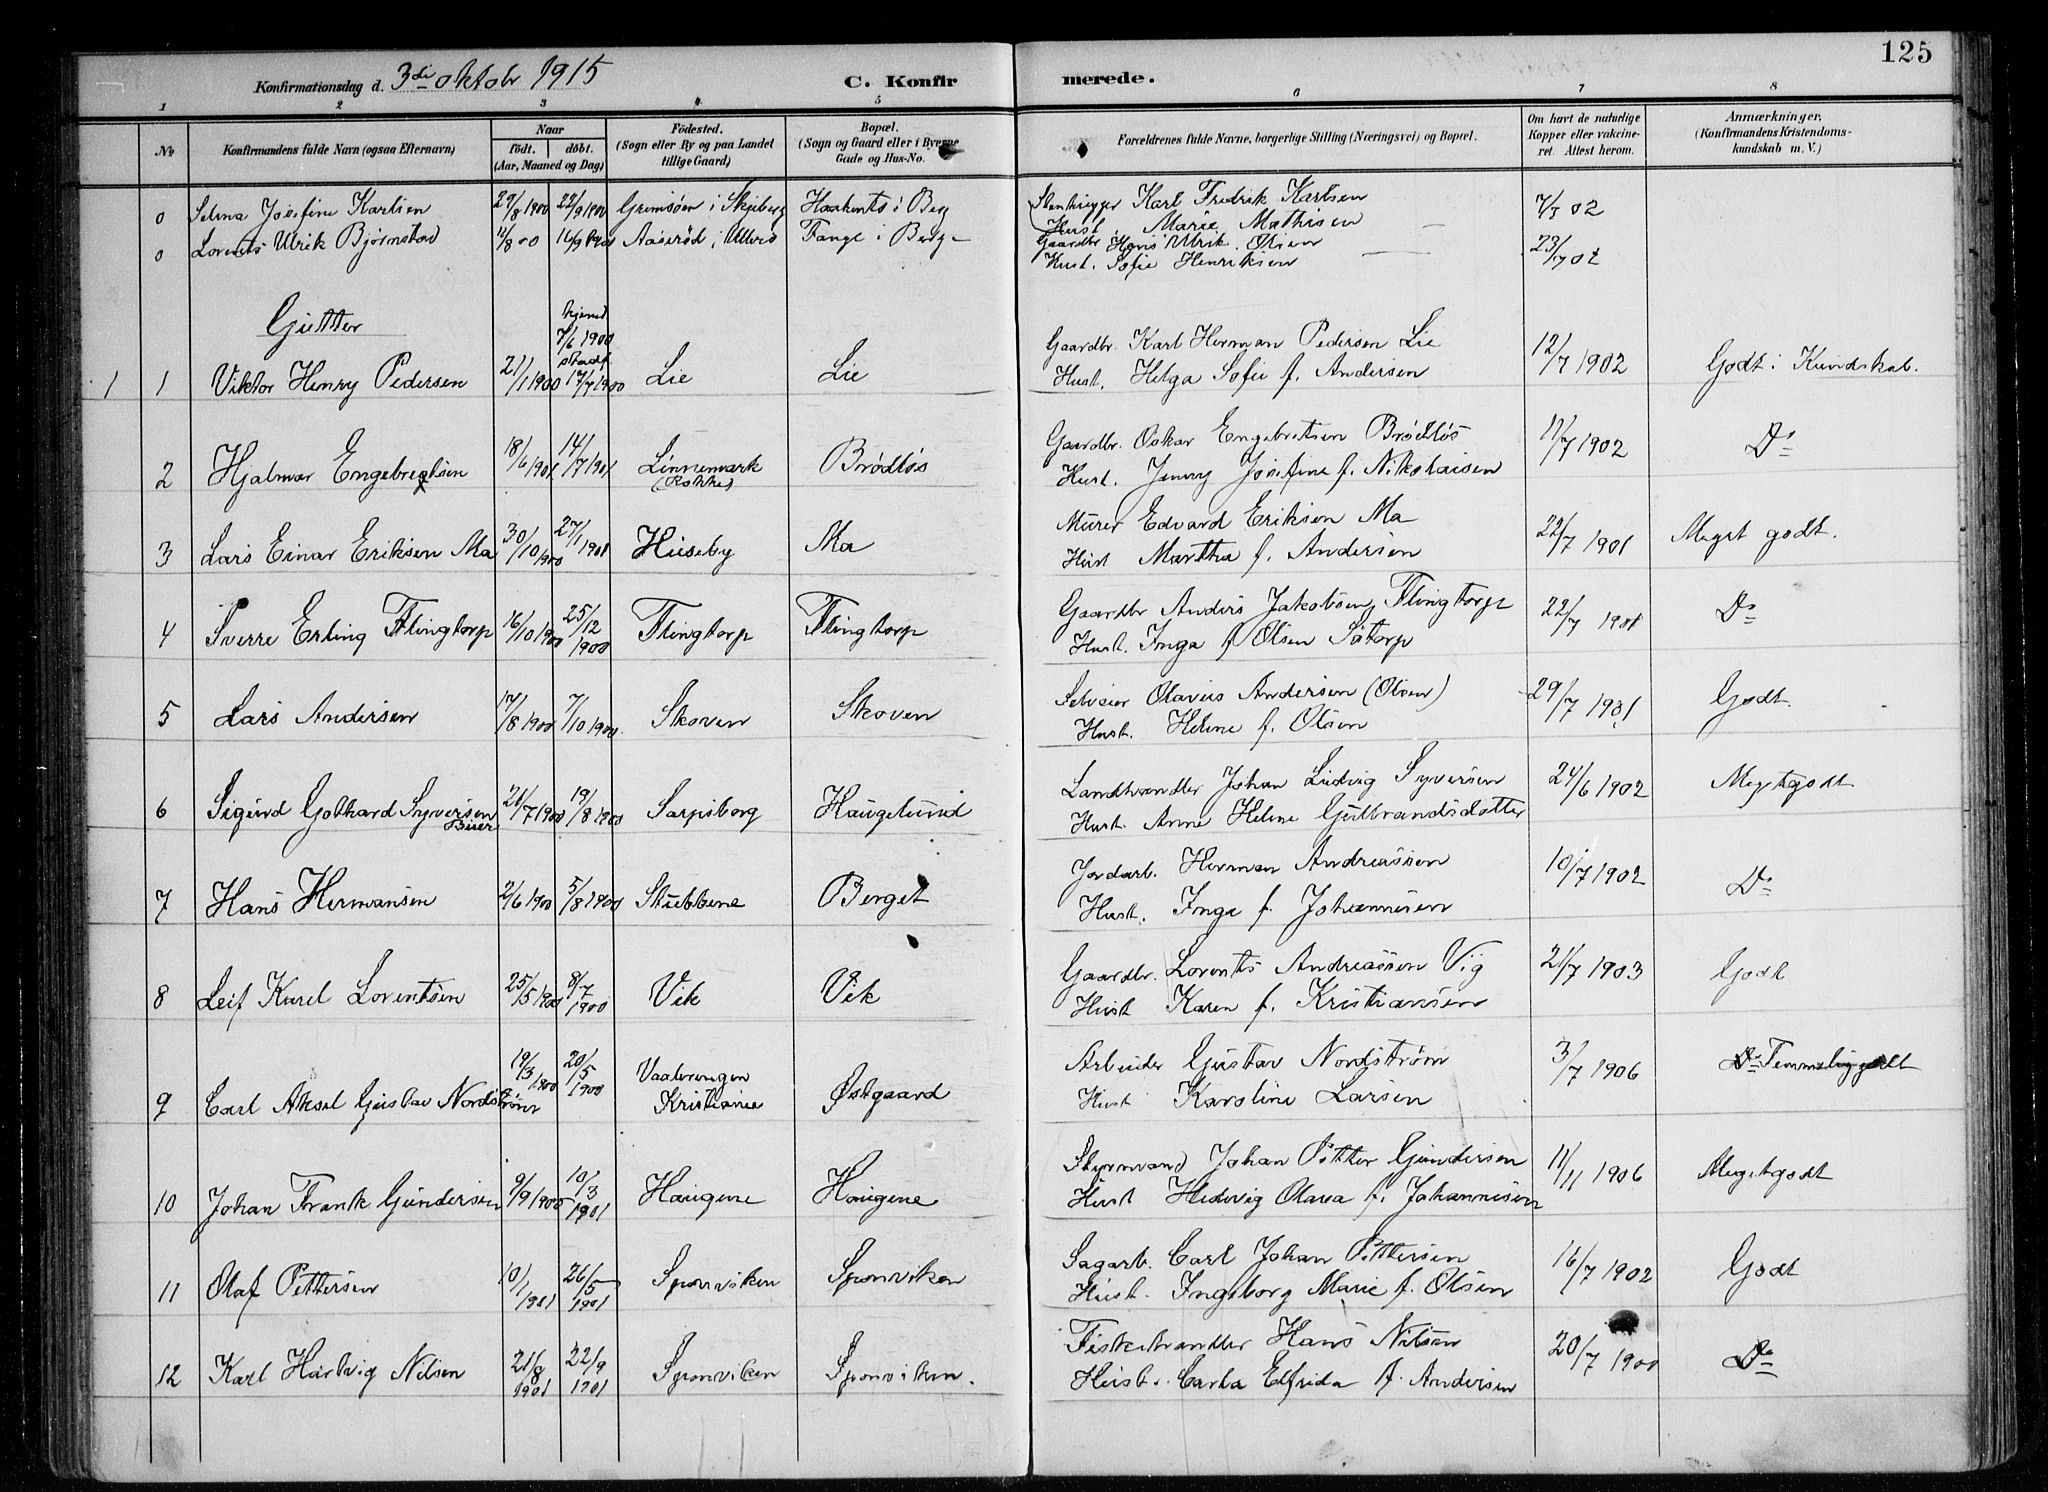 125
Konfirmationsdag d. 3di oktobr 1915 C. Konfirmerede.
1 2 3 4 5 6 7 8
No Konfirmandens fulde Navn (ogsaa Efternavn) Naar Födt. döbt. (Aar, Maaned og Dag) Födested. (Sogn eller By og paa Landet tillige Gaard) Bopæl. (Sogn og Gaard eller i Byerne Gade og Hus-No. Forældrenes fulde Navne, borgerlige Stilling (Næringsvei) og Bopæl. Om havt de naturlige Kopper eller vakcineret. Attest herom. Anmærkninger. (Konfirmandens Kristendomskundskab m. V.)
0 Selma Josefine Karlsen 29/8 1900 22/9 1900 Grimsöen i Skjeberg i Berg Stenhugger Karl Fredrik Karlsen
Hust. Marie Mathisen 02
0 Lorents Ulrik Bjørnstad 11/8 00 16/9 1900 Aaseröd i Ullerö Tange i Berg Gaardbr. Hans Ulrik Olsen
Hust. Sofie Henriksen 23/7 02
Gutter
hjemd 7/6 1900 stadf.
1 1 Viktor Henry Pedersen 21/1 1900 17/7 1900 Lie Lie Gaardbr. Karl Herman Pedersen Lie
Hust. Helga Sofie f. Andersen 12/7 1902 Godt i Kundskab.
2 Hjalmar Engebretsen 18/6 1901 14/7 1901 Linnemark (Rokke) Brödlös Gaardbr. Oskar Engebretsen Brödlös
Hust. Jenny Josefine f. Nikolaisen 17/7 1902 Do
3 Lars Einar Eriksen Ma 30/10 1900 27/1 1901 Huseby Ma Murer Edvard Eriksen Ma
Hust Martha f. Andersen 22/7 1901 Meget godt.
4 Sverre Erling Flingtorp 16/10 1900 25/12 1900 Flingtorp Flingtorp Gaardbr Anders Jakobsen Flingtorp
Hust. Inga f Olsen Sötorp 22/7 1901 Do
5 Lars Andersen 17/8 1900 7/10 1900 Skoven Skoven Selveier Olavus Andersen (Olsen)
Hust. Helene f. Olsen 29/7 1901 Godt.
6 Sigurd Gothard Syversen Bier 21/7 1900 19/8 1900 Sarpsborg Haugelund Landhandler Johan Ludvig Syversen
Hust. Anne Helene Gulbrandsdatter 24/6 1902 Megetgodt
7 Hans Hermansen 2/6 1900 5/8 1900 Stubbene Berget Jordarb. Herman Andreassen
Hust. Inga f. Johannesen 10/7 1902 Do
8 Leif Karel Lorentsen 25/5 1900 8/7 1900 Vik Vik Gaardbr. Lorents Andreassen Vig
Hust Karen f. Kristiansen 21/7 1903 Godt
9 Carl Aksel Gustav Nordström 19/3 1900 20/5 1900 Vaalerengen Kristiania Østgaard Arbeider Gustav Nordström
Hust Karoline Larsen 3/7 1906 Do Temmeliggodt
10 Johan Frank Gundersen 9/9 1900 10/3 1901 Haugene Haugene Styrmand Johan Petter Gundersen
Hust Hedevig Olava f. Johannesen 11/11 1906 Megetgodt
11 Olaf Pettersen 10/1 1901 26/5 1901 Sponviken Sponviken Sagarb. Carl Johan Pettersen
Hust. Ingeborg Marie f. Olsen 16/7 1902 Godt
12 Karl Hartvig Nilsen 21/8 1901 22/9 1901 Sponviken Sponviken. Fiskehandler Hans Nilsen
Hust. Carla Elfrida f. Andersen 20/7 1900 Do